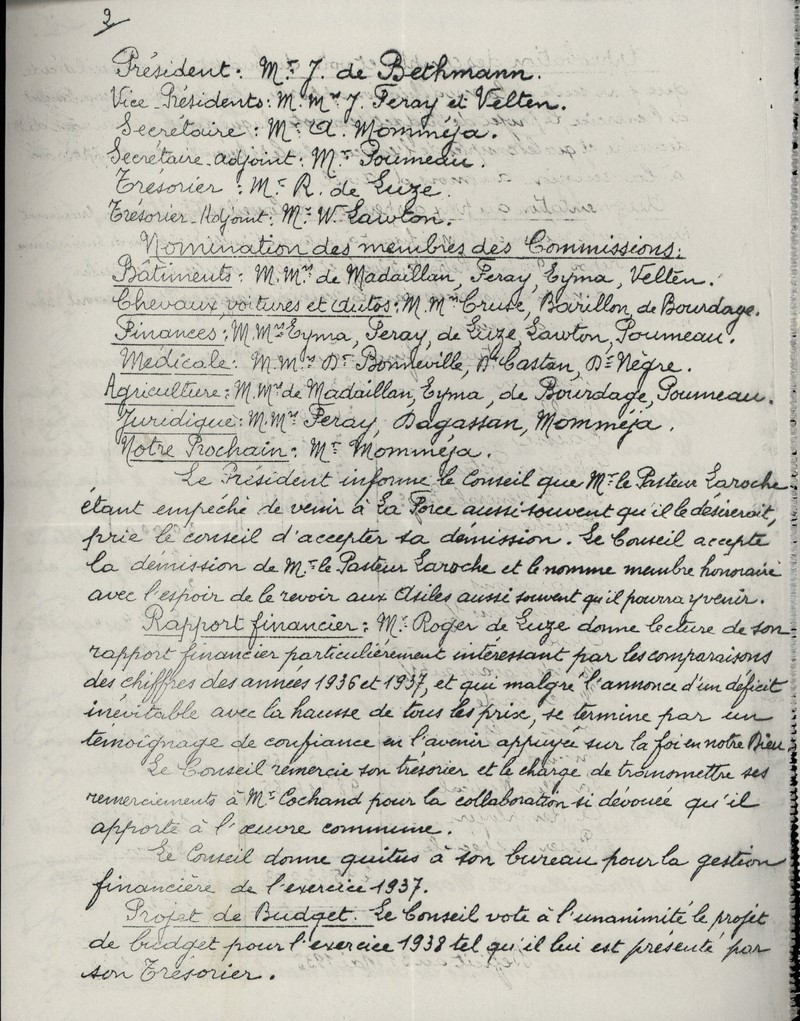 2
Président : Mr J. de Bethmann.
Vice-Présidents : M.Mrs J. Feray et Velten.
Secrétaire : Mr A. Momméja.
Secrétaire-adjoint : Mr Poumeau.
Trésorier : Mr R. de Luze.
Trésorier-Adjoint : Mr W. Lawton.
Nomination des membres des Commissions :
Bâtiments : M.Mrs de Madaillan, Feray, Eyma, Velten.
Chevaux, voitures et autos : M.Mrs Cruse, Barillon, de Bourdage.
Finances : M.Mrs Eyma, Feray, de Luze, Lawton, Poumeau.
Médicale : M.Mrs Dr Bonneville, Dr Castan, Dr Nègre.
Agriculture : M.Mrs de Madaillan, Eyma, de Bourdage, Poumeau.
Juridique : M.Mrs Feray, Dagassan, Momméja.
Notre Prochain : Mr Momméja.
Le Président informe le Conseil que Mr le Pasteur Laroche
étant empêché de venir à La Force aussi souvent qu'il le désirerait,
prie le conseil d'accepter sa démission. Le Conseil accepte
la démission de Mr le Pasteur Laroche et le nomme membre honoraire
avec l'espoir de le revoir aux Asiles aussi souvent qu'il pourra y venir.
Rapport financier : Mr Roger de Luze donne lecture de son
rapport financier particulièrement intéressant par les comparaisons
des chiffres des années 1936 et 1937, et qui malgré l'annonce d'un déficit
inévitable avec la hausse de tous les prix, se termine par un
témoignage de confiance en l'avenir appuyée sur la foi en notre Dieu.
Le Conseil remercie son trésorier et le charge de transmettre ses
remerciements à Mr Cochand pour la collaboration si dévouée qu'il
apporte à l'œuvre commune.
Le Conseil donne quitus à son bureau pour la gestion
financière de l'exercice 1937.
Projet de Budget. Le Conseil vote à l'unanimité le projet
de budget pour l'exercice 1938 tel qu'il lui est présenté par
son Trésorier.